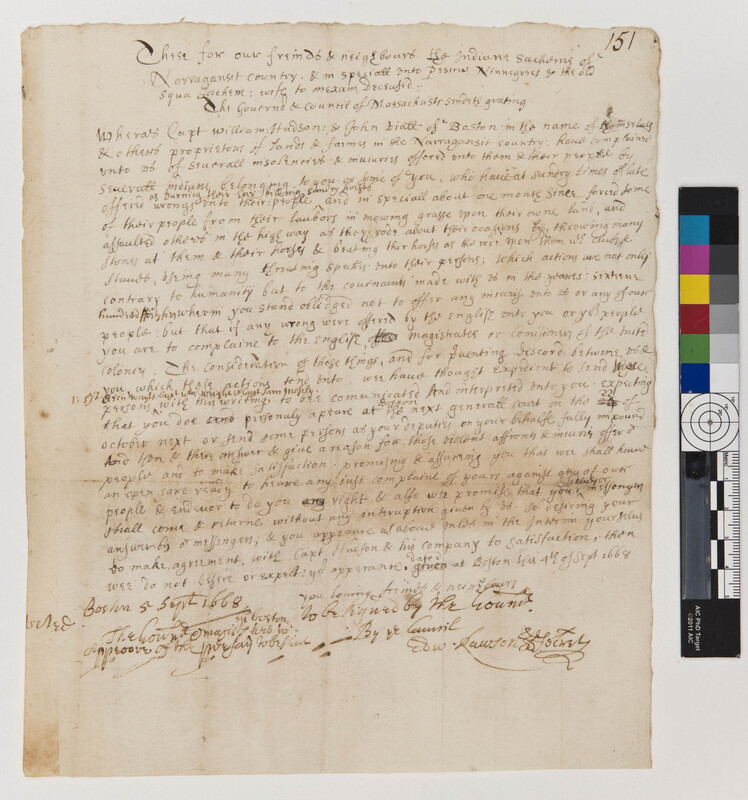 151
These for our freinds & neighbours the Indians Sachems of
Narragansit Country. & in speciall unto Pesicus Ninnegrets & the old
Squa Sachem: wife to mexam deceased:
The Governor & Councill of Massachusets sendeth greting.
Wheras Capt William Hudson: & John Viall of Boston in the name of themselves
& others proprietors of lands & farmes in the Narragansit country: have complained
unto us of severall insolencies & iniuries offered unto them & their people by
severall indians belonging to you or some of you, who have at sundry times of late
as burning their hay killing sundry horses
offered wrongs unto their people and in speciall about one month since forced some
of their people from their labors in mowing grasse upon their owne land, and
assaulted others in the high way as they rode about their occasions by throwing many
stones at them & their horses & beating their horses as the rode upon them
staves, using many speches unto their persons; which actions are not only
contrary to humanity but to the covenants made with us in the yeares: sixteene
hundred wherin you stand obledged not to offer any iniury unto us or any of our
people: but that if any wrong were offered by the English unto you or yor people
you are to complaine to the English magistrates or Comissioners of the united
Colonies. The consideration of those things, and for preventing discord betweene us &
you, which these actions tend unto. wee have thought expedient to send these
persons with this writing to bee comunicated And interpreted unto you. expecting
that you doe send personaly apeare at the next generall Court in the of
Boston
october next or send some persons as your deputies on your behalfe fully impowrd
And then & there answer & give a reason for those violent affronts & iniuries offered
people and to make satisfaction. promising & assuring you that wee shall have
an open eare ready to heare any just complaint of yours against any of our
people & endevor to do you any right & also wee promise that you messengers
shall come & returne without any interuption given by us. so desiring your
answer by or messengers, & you appeare as above unles in the Interim yourselves
do make agreement with Capt Hudson & his company to satisfaction, then
wee do not desire or expect yor apperance. given at Boston this 4th of Sept 1668
dated
you loving freinds & neighbours
Boston 5 Sept 1668
to be signed by the Governr.
The Governr & magists in boston
Approove of the
By ye Council
Edw Rawson Secrety